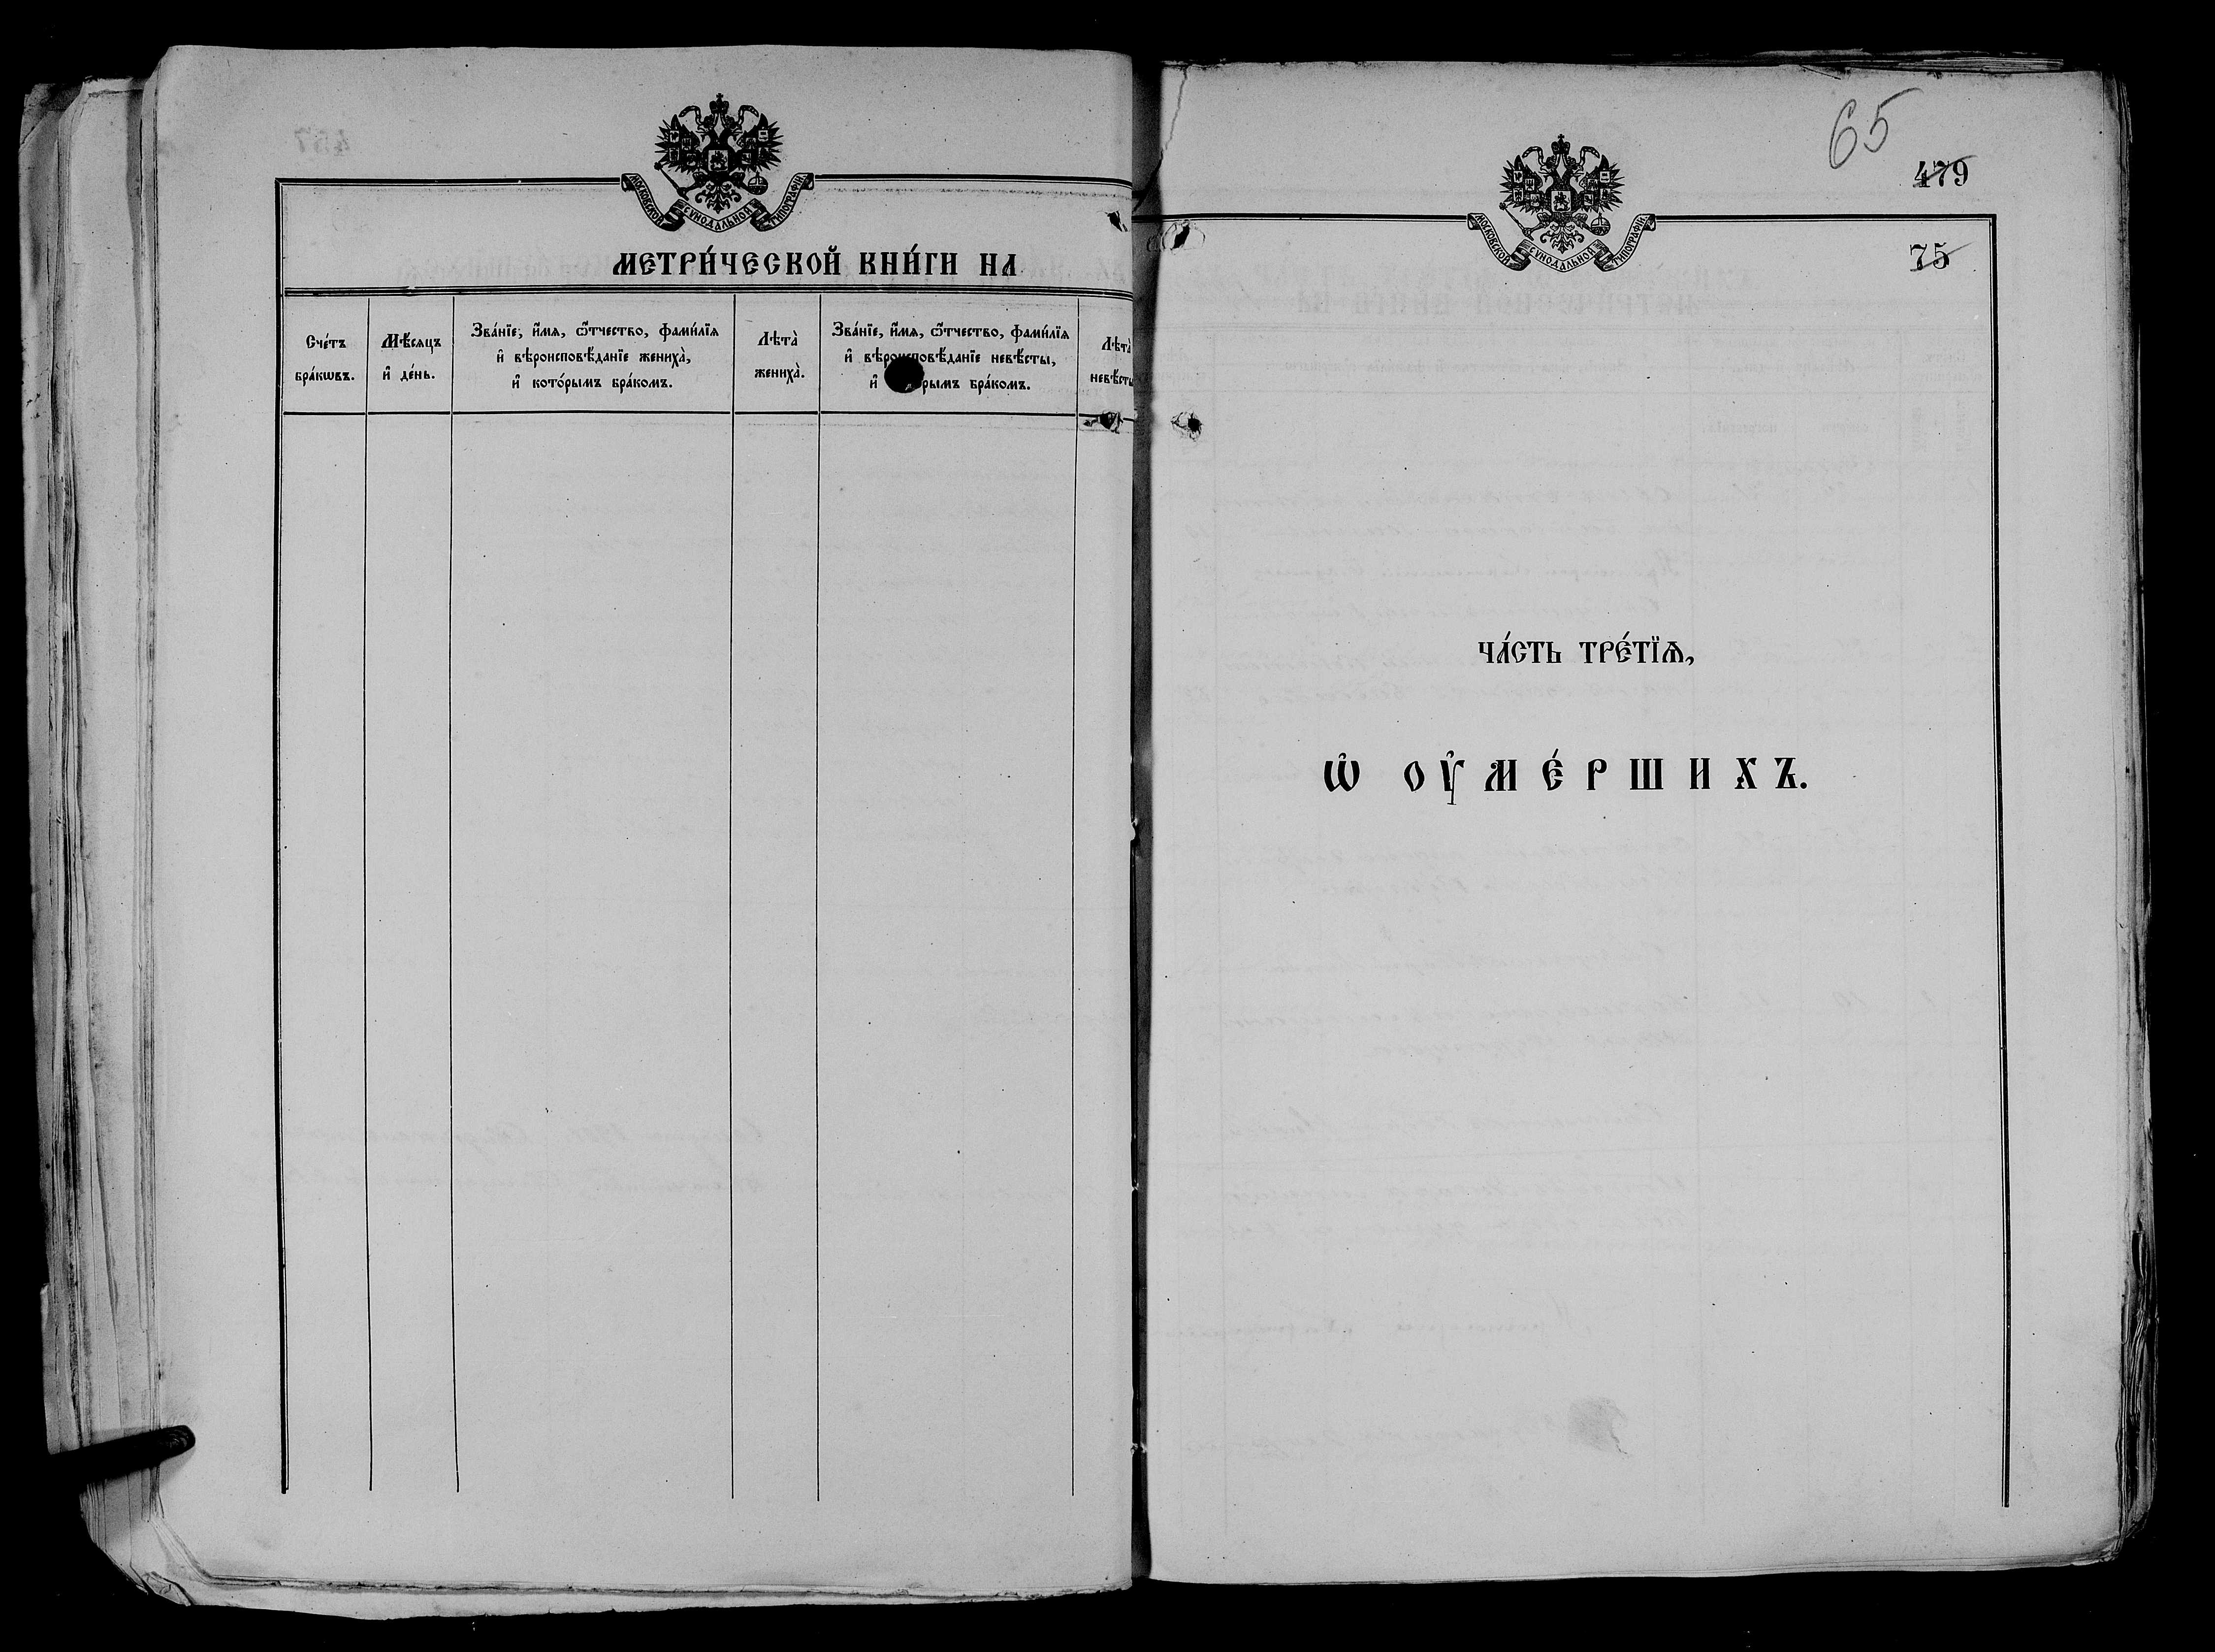 МОСКОВСКОЙ СѴНОДАЛЬНОЙ ТИПОГРАФІИ
МЕТРИ́ЧЕСКОЙ КНИ́ГИ НА
Сче́тъ
бра́кѡвъ.
Мѣ́сяцъ
и҆ де́нь.
Зва́нїе, и҆́мѧ, ѻ҆́тчество, фами́лїѧ
и҆ вѣроисповѣ́данїе жениха̀,
и҆ кото́рымъ бра́комъ.
Лѣта̀
жениха̀.
Зва́нїе, и҆́мѧ, ѻ҆́тчество, фами́лїѧ
и҆ вѣроисповѣ́данїе невѣ́сты,
и҆ рымъ бра́комъ.
Лѣта̀
невѣ́сты
65
479
МОСКОВСКОЙ СѴНОДАЛЬНОЙ ТИПОГРАФІИ
75
ЧА́СТЬ ТРЕ́ТЇѦ,
Ѡ҆ ОУ҆МЕ́РШИХЪ.